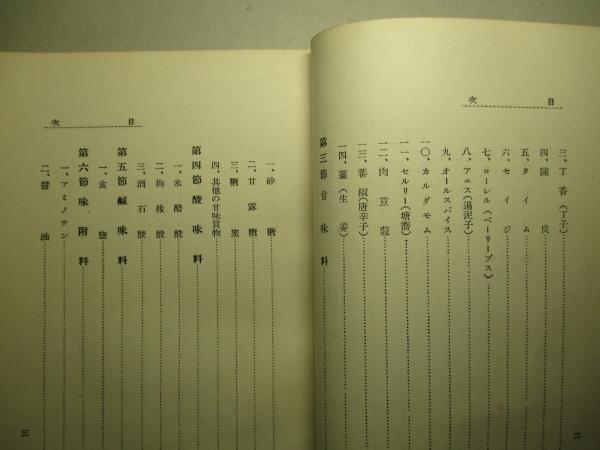 目次
三、丁香(丁子)
四、陳皮
五、タイム
六、セイジ
七、ローレル(ベーリーブス)
八、アニス(遏泥子)
九、オールスパイス
一〇、カルダモム
一一、セルリー(塘蒿)
一二、肉荳蔲
一三、蕃椒(唐辛子)
一四、薑(生姜)
第三節甘味料
二
目次
一、砂糖
二、甘露糖
三、糖蜜
四、其他の甘味質物
第四節酸味料
一、氷醋酸
二、拘櫞酸
三、酒石酸
第五節鹹味料
一、食鹽
第六節味附料
一、アミノサン
二、醤油
三